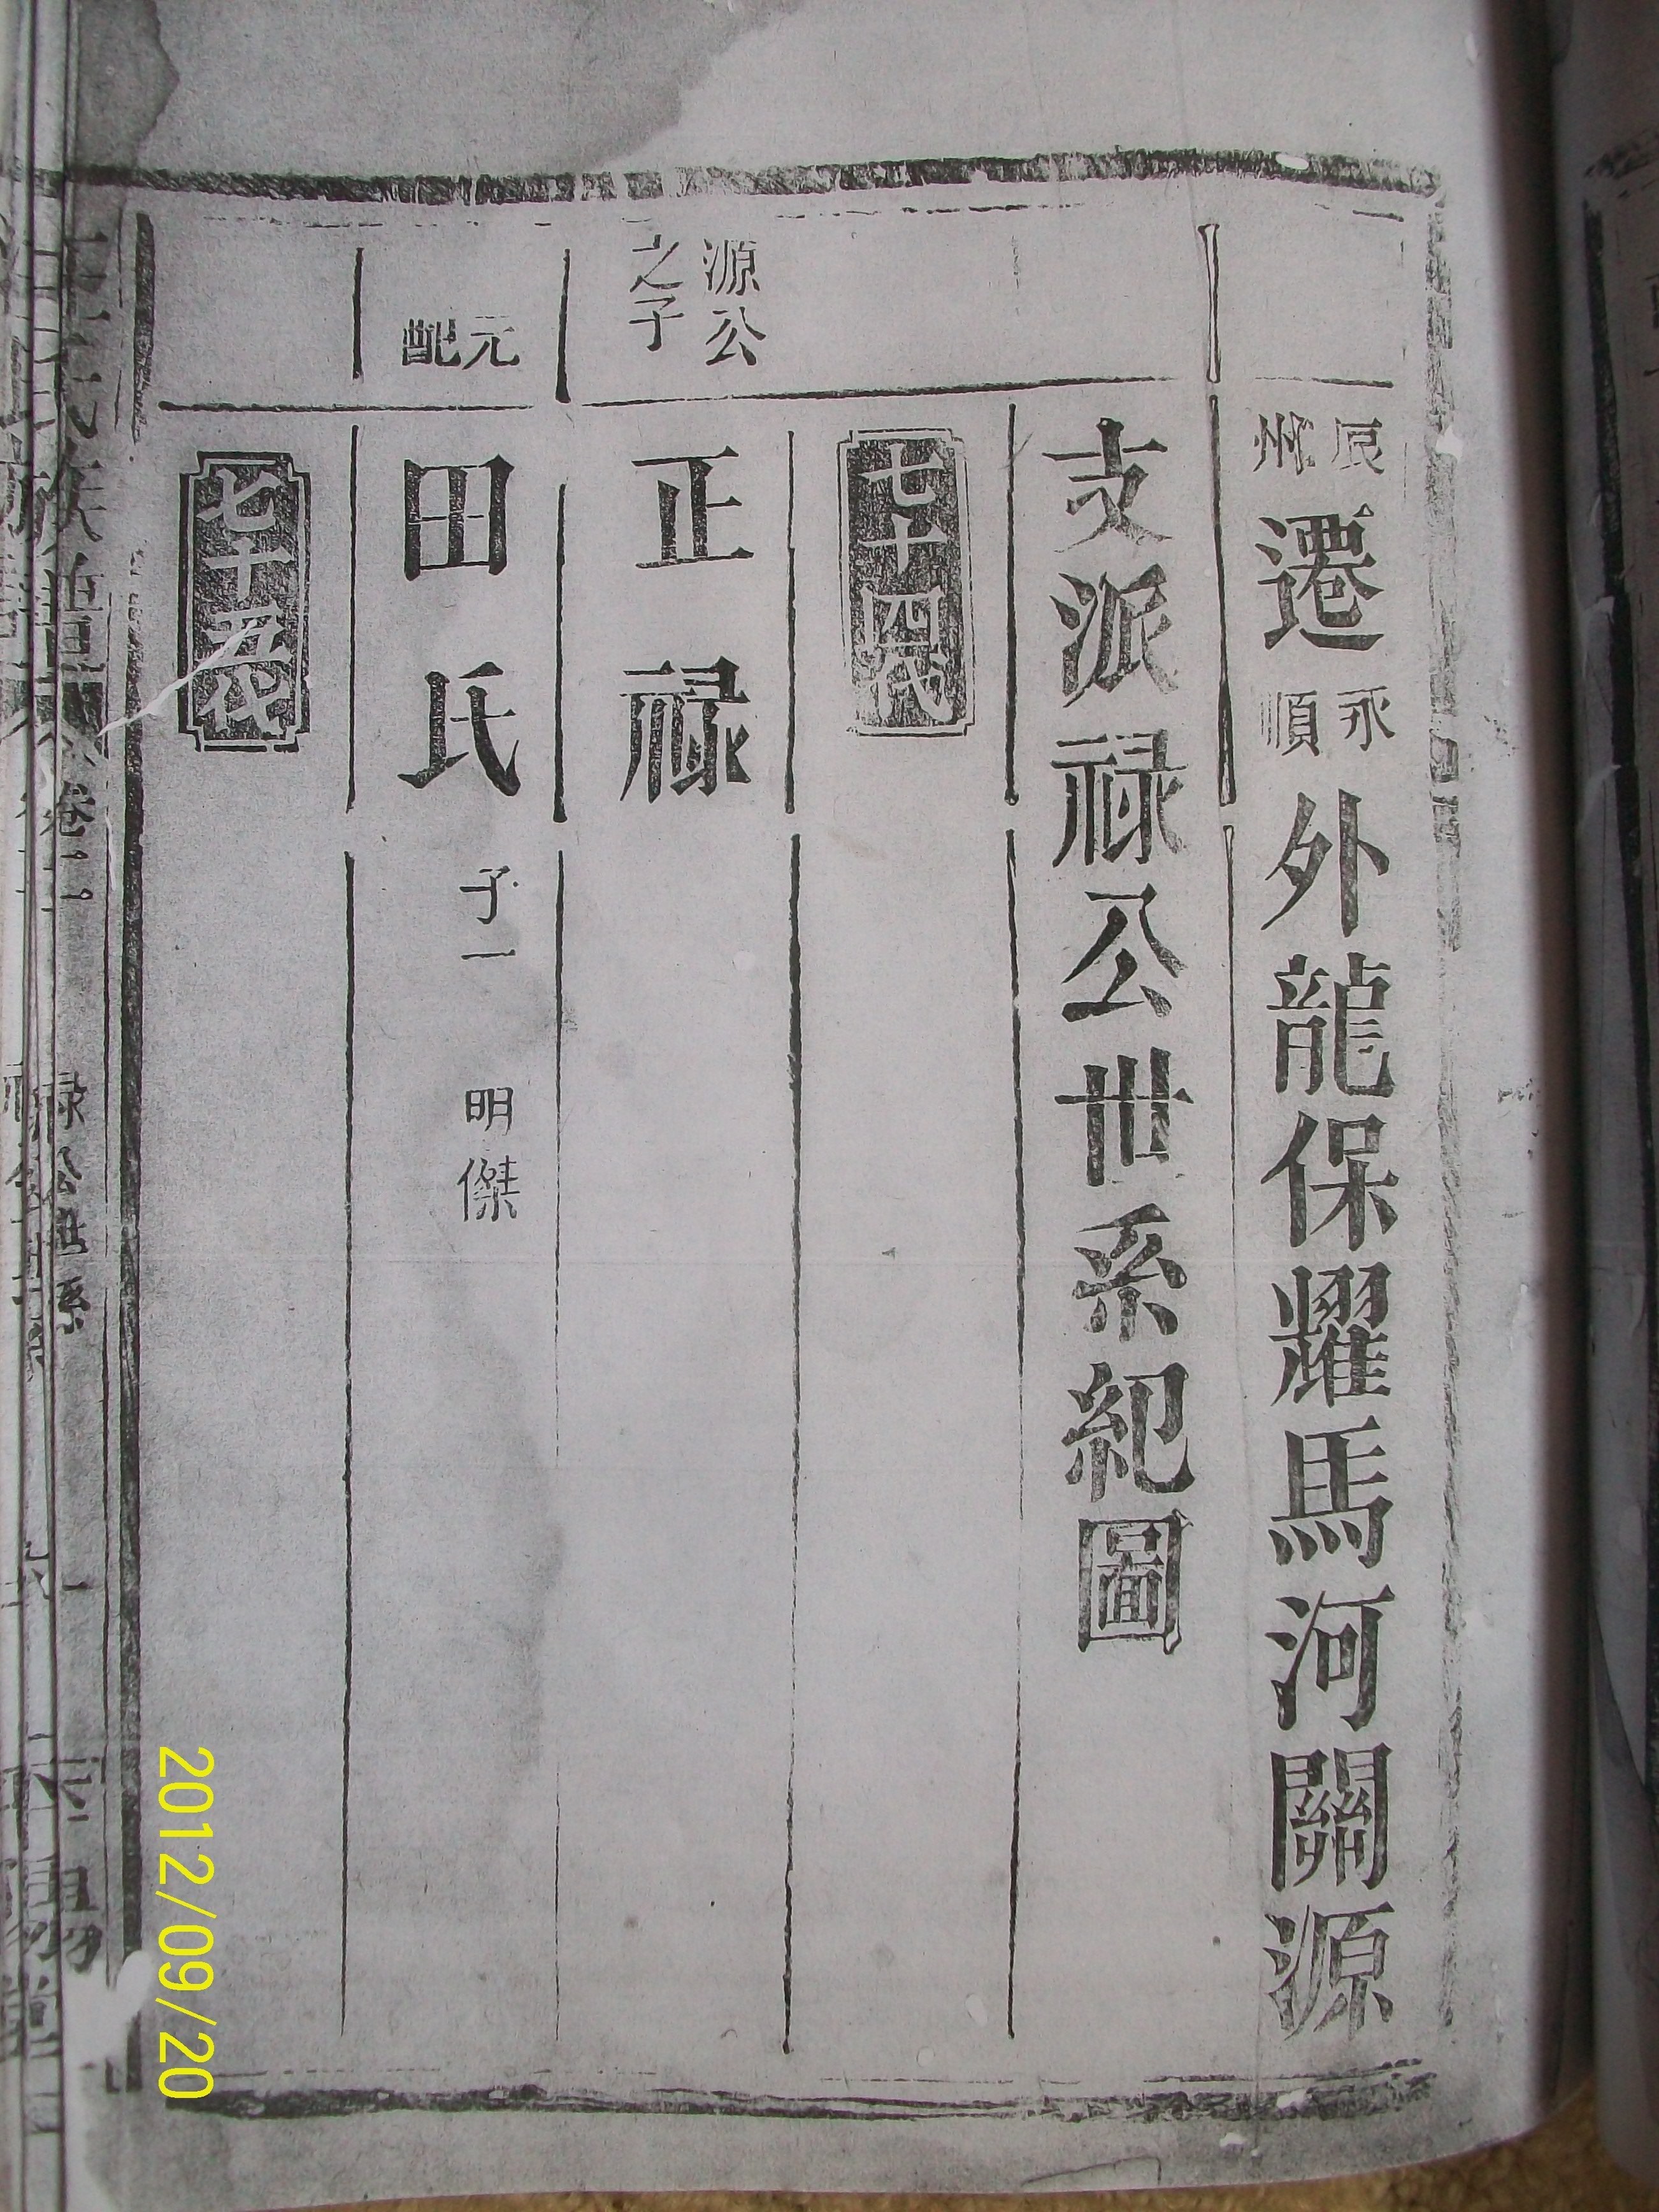 辰州遷永順外龍保耀馬河關源
支派禄公世系紀圖
七十四代
源公之子
正禄
元配
田氏 子一 明傑
七十五代
禄公世系 一
2012/09/20